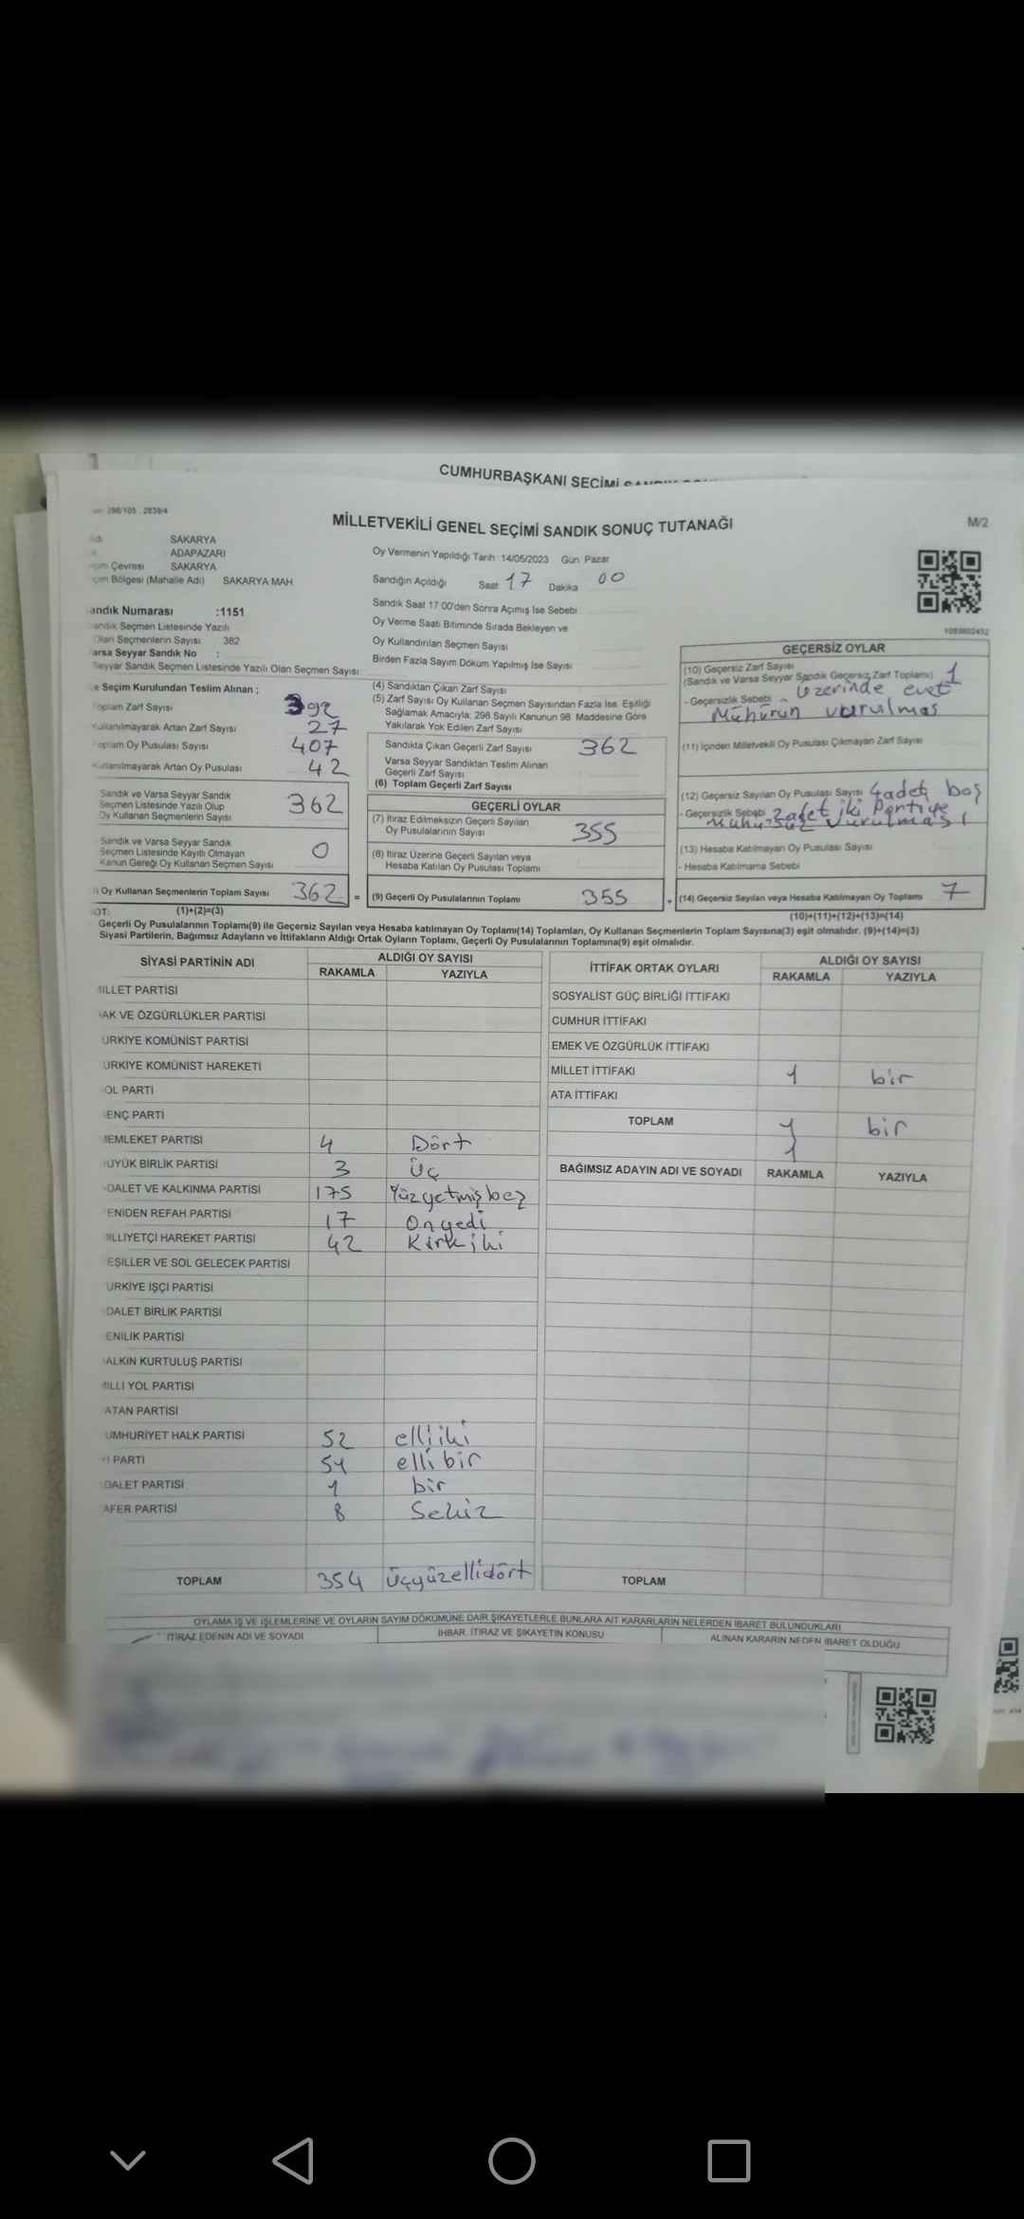 CUMHURBAŞKANI SEÇİMİ
MİLLETVEKİLİ GENEL SEÇİMİ SANDIK SONUÇ TUTANAĞI
M/2
SAKARYA
ADAPAZARI
Çevresi SAKARYA
Bölgesi (Mahalle Adı) SAKARYA MAH.
andık Numarası :1151
andık Seçmen Listesinde Yazılı
Olan Seçmenlerin Sayısı 382
arsa Seyyar Sandık No :
Seyyar Sandık Seçmen Listesinde Yazılı Olan Seçmen Sayısı
Oy Vermenin Yapıldığı Tarih :14/05/2023 Gün: Pazar
Sandığın Açıldığı Saat 17 Dakika 00
Sandık Saat 17:00'den Sonra Açılmış İse Sebebi
Oy Verme Saati Bitiminde Sırada Bekleyen ve
Oy Kullandırılan Seçmen Sayısı
Birden Fazla Sayım Döküm Yapılmış İse Sayısı
e Seçim Kurulundan Teslim Alınan ;
Toplam Zarf Sayısı 392
Kullanılmayarak Artan Zarf Sayısı 27
oplam Oy Pusulası Sayısı 407
Kullanılmayarak Artan Oy Pusulası 42
Sandık ve Varsa Seyyar Sandık
Seçmen Listesinde Yazılı Olup
Oy Kullanan Seçmenlerin Sayısı 362
Sandık ve Varsa Seyyar Sandık
Seçmen Listesinde Kayıtlı Olmayan
Kanun Gereği Oy Kullanan Seçmen Sayısı 0
Oy Kullanan Seçmenlerin Toplam Sayısı 362 =
(1)+(2)=(3)
(4) Sandıktan Çıkan Zarf Sayısı
(5) Zarf Sayısı Oy Kullanan Seçmen Sayısından Fazla İse, Eşitliği
Sağlamak Amacıyla, 298 Sayılı Kanunun 98. Maddesine Göre
Yakılarak Yok Edilen Zarf Sayısı
Sandıkta Çıkan Geçerli Zarf Sayısı 362
Varsa Seyyar Sandıktan Teslim Alınan
Geçerli Zarf Sayısı
(6) Toplam Geçerli Zarf Sayısı
GEÇERLİ OYLAR
(7) İtiraz Edilmeksizin Geçerli Sayılan
Oy Pusulalarının Sayısı 355
(8) İtiraz Üzerine Geçerli Sayılan veya
Hesaba Katılan Oy Pusulası Toplamı
(9) Geçerli Oy Pusulalarının Toplamı 355 +
GEÇERSİZ OYLAR
(10) Geçersiz Zarf Sayısı
(Sandık ve Varsa Seyyar Sandık Geçersiz Zarf Toplamı) 1
- Geçersizlik Sebebi Üzerinde evet
Mühürün vurulmas
(11) İçinden Milletvekili Oy Pusulası Çıkmayan Zarf Sayısı
(12) Geçersiz Sayılan Oy Pusulası Sayısı 4 adet boş
- Geçersizlik Sebebi 2 adet iki Partiye
vurulması
(13) Hesaba Katılmayan Oy Pusulası Sayısı
- Hesaba Katılmama Sebebi
(14) Geçersiz Sayılan veya Hesaba Katılmayan Oy Toplamı 7
(10)+(11)+(12)+(13)=(14)
OT:
Geçerli Oy Pusulalarının Toplamı(9) ile Geçersiz Sayılan veya Hesaba katılmayan Oy Toplamı(14) Toplamları, Oy Kullanan Seçmenlerin Toplam Sayısına(3) eşit olmalıdır. (9)+(14)=(3)
Siyasi Partilerin, Bağımsız Adayların ve İttifakların Aldığı Ortak Oyların Toplamı, Geçerli Oy Pusulalarının Toplamına(9) eşit olmalıdır.
SİYASİ PARTİNİN ADI ALDIĞI OY SAYISI
RAKAMLA YAZIYLA
MİLLET PARTİSİ
AK VE ÖZGÜRLÜKLER PARTİSİ
ÜRKİYE KOMÜNİST PARTİSİ
ÜRKİYE KOMÜNİST HAREKETİ
OL PARTİ
ENÇ PARTİ
MEMLEKET PARTİSİ 4 Dört
ÜYÜK BİRLİK PARTİSİ 3 Üç
DALET VE KALKINMA PARTİSİ 175 Yüzyetmişbeş
ENİDEN REFAH PARTİSİ 17 Onyedi
İLLİYETÇİ HAREKET PARTİSİ 42 Kırkiki
EŞİLLER VE SOL GELECEK PARTİSİ
ÜRKİYE İŞÇİ PARTİSİ
DALET BİRLİK PARTİSİ
ENİLİK PARTİSİ
ALKIN KURTULUŞ PARTİSİ
MİLLİ YOL PARTİSİ
ATAN PARTİSİ
UMHURİYET HALK PARTİSİ 52 elliiki
Yİ PARTİ 51 elli bir
DALET PARTİSİ 1 bir
AFER PARTİSİ 8 Sekiz
TOPLAM 354 üçyüzellidört
İTTİFAK ORTAK OYLARI ALDIĞI OY SAYISI
RAKAMLA YAZIYLA
SOSYALİST GÜÇ BİRLİĞİ İTTİFAKI
CUMHUR İTTİFAKI
EMEK VE ÖZGÜRLÜK İTTİFAKI
MİLLET İTTİFAKI 1 bir
ATA İTTİFAKI
TOPLAM 1 bir
1
BAĞIMSIZ ADAYIN ADI VE SOYADI RAKAMLA YAZIYLA
TOPLAM
OYLAMA İŞ VE İŞLEMLERİNE VE OYLARIN SAYIM DÖKÜMÜNE DAİR ŞİKAYETLERLE BUNLARA AİT KARARLARIN NELERDEN İBARET BULUNDUKLARI
İTİRAZ EDENİN ADI VE SOYADI İHBAR, İTİRAZ VE ŞİKAYETİN KONUSU ALINAN KARARIN NEDEN İBARET OLDUĞU